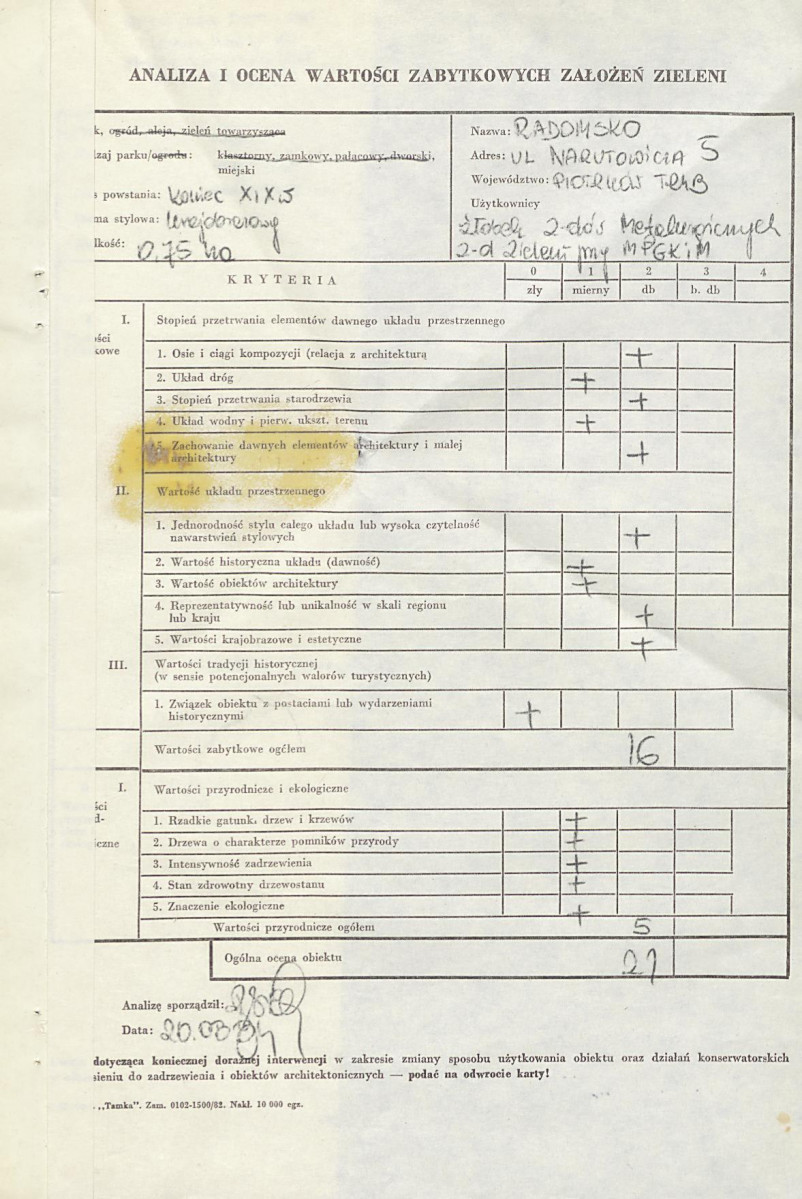 ANALIZA I OCENA WARTOŚCI ZABYTKOWYCH ZAŁOŻEŃ ZIELENI
k, ogród, aleja, zieleń towarzysząca
zaj parku/ogrodu: klasztorny, zamkowy, pałacowy, dworski,
miejski
s powstania: koniec XIX w
ma stylowa: krajobrazowy
lkość: 0.75 ha
Nazwa: RADOMSKO
Adres: UL NARUTOWICZA 5
Województwo: PIOTRKÓW TRYB
Użytkownicy
Żłobek 2-dos Metalurgicznych
2-d Zieleni MPGKiM
KRYTERIA
0 1 2 3 4
zły mierny db b. db
I. Stopień przetrwania elementów dawnego układu przestrzennego
ści
kowe
1. Osie i ciągi kompozycji (relacja z architekturą +
2. Układ dróg +
3. Stopień przetrwania starodrzewia +
4. Układ wodny i pierw. ukszt. terenu +
5. Zachowanie dawnych elementów architektury i małej
architektury +
II. Wartość układu przestrzennego
1. Jednorodność stylu całego układu lub wysoka czytelność
nawarstwień stylowych +
2. Wartość historyczna układu (dawność) +
3. Wartość obiektów architektury +
4. Reprezentatywność lub unikalność w skali regionu
lub kraju +
5. Wartości krajobrazowe i estetyczne +
III. Wartości tradycji historycznej
(w sensie potencjonalnych walorów turystycznych)
1. Związek obiektu z postaciami lub wydarzeniami
historycznymi +
Wartości zabytkowe ogółem 16
I. Wartości przyrodnicze i ekologiczne
ści
d-
iczne
1. Rzadkie gatunki drzew i krzewów +
2. Drzewa o charakterze pomników przyrody +
3. Intensywność zadrzewienia +
4. Stan zdrowotny drzewostanu +
5. Znaczenie ekologiczne +
Wartości przyrodnicze ogółem 5
Ogólna ocena obiektu 21
Analizę sporządził:
Data: 20.08.84
dotycząca koniecznej doraźnej interwencji w zakresie zmiany sposobu użytkowania obiektu oraz działań konserwatorskich
sieniu do zadrzewienia i obiektów architektonicznych — podać na odwrocie karty!
. „Tamka”. Zam. 0102-1500/82. Nakł. 10 000 egz.